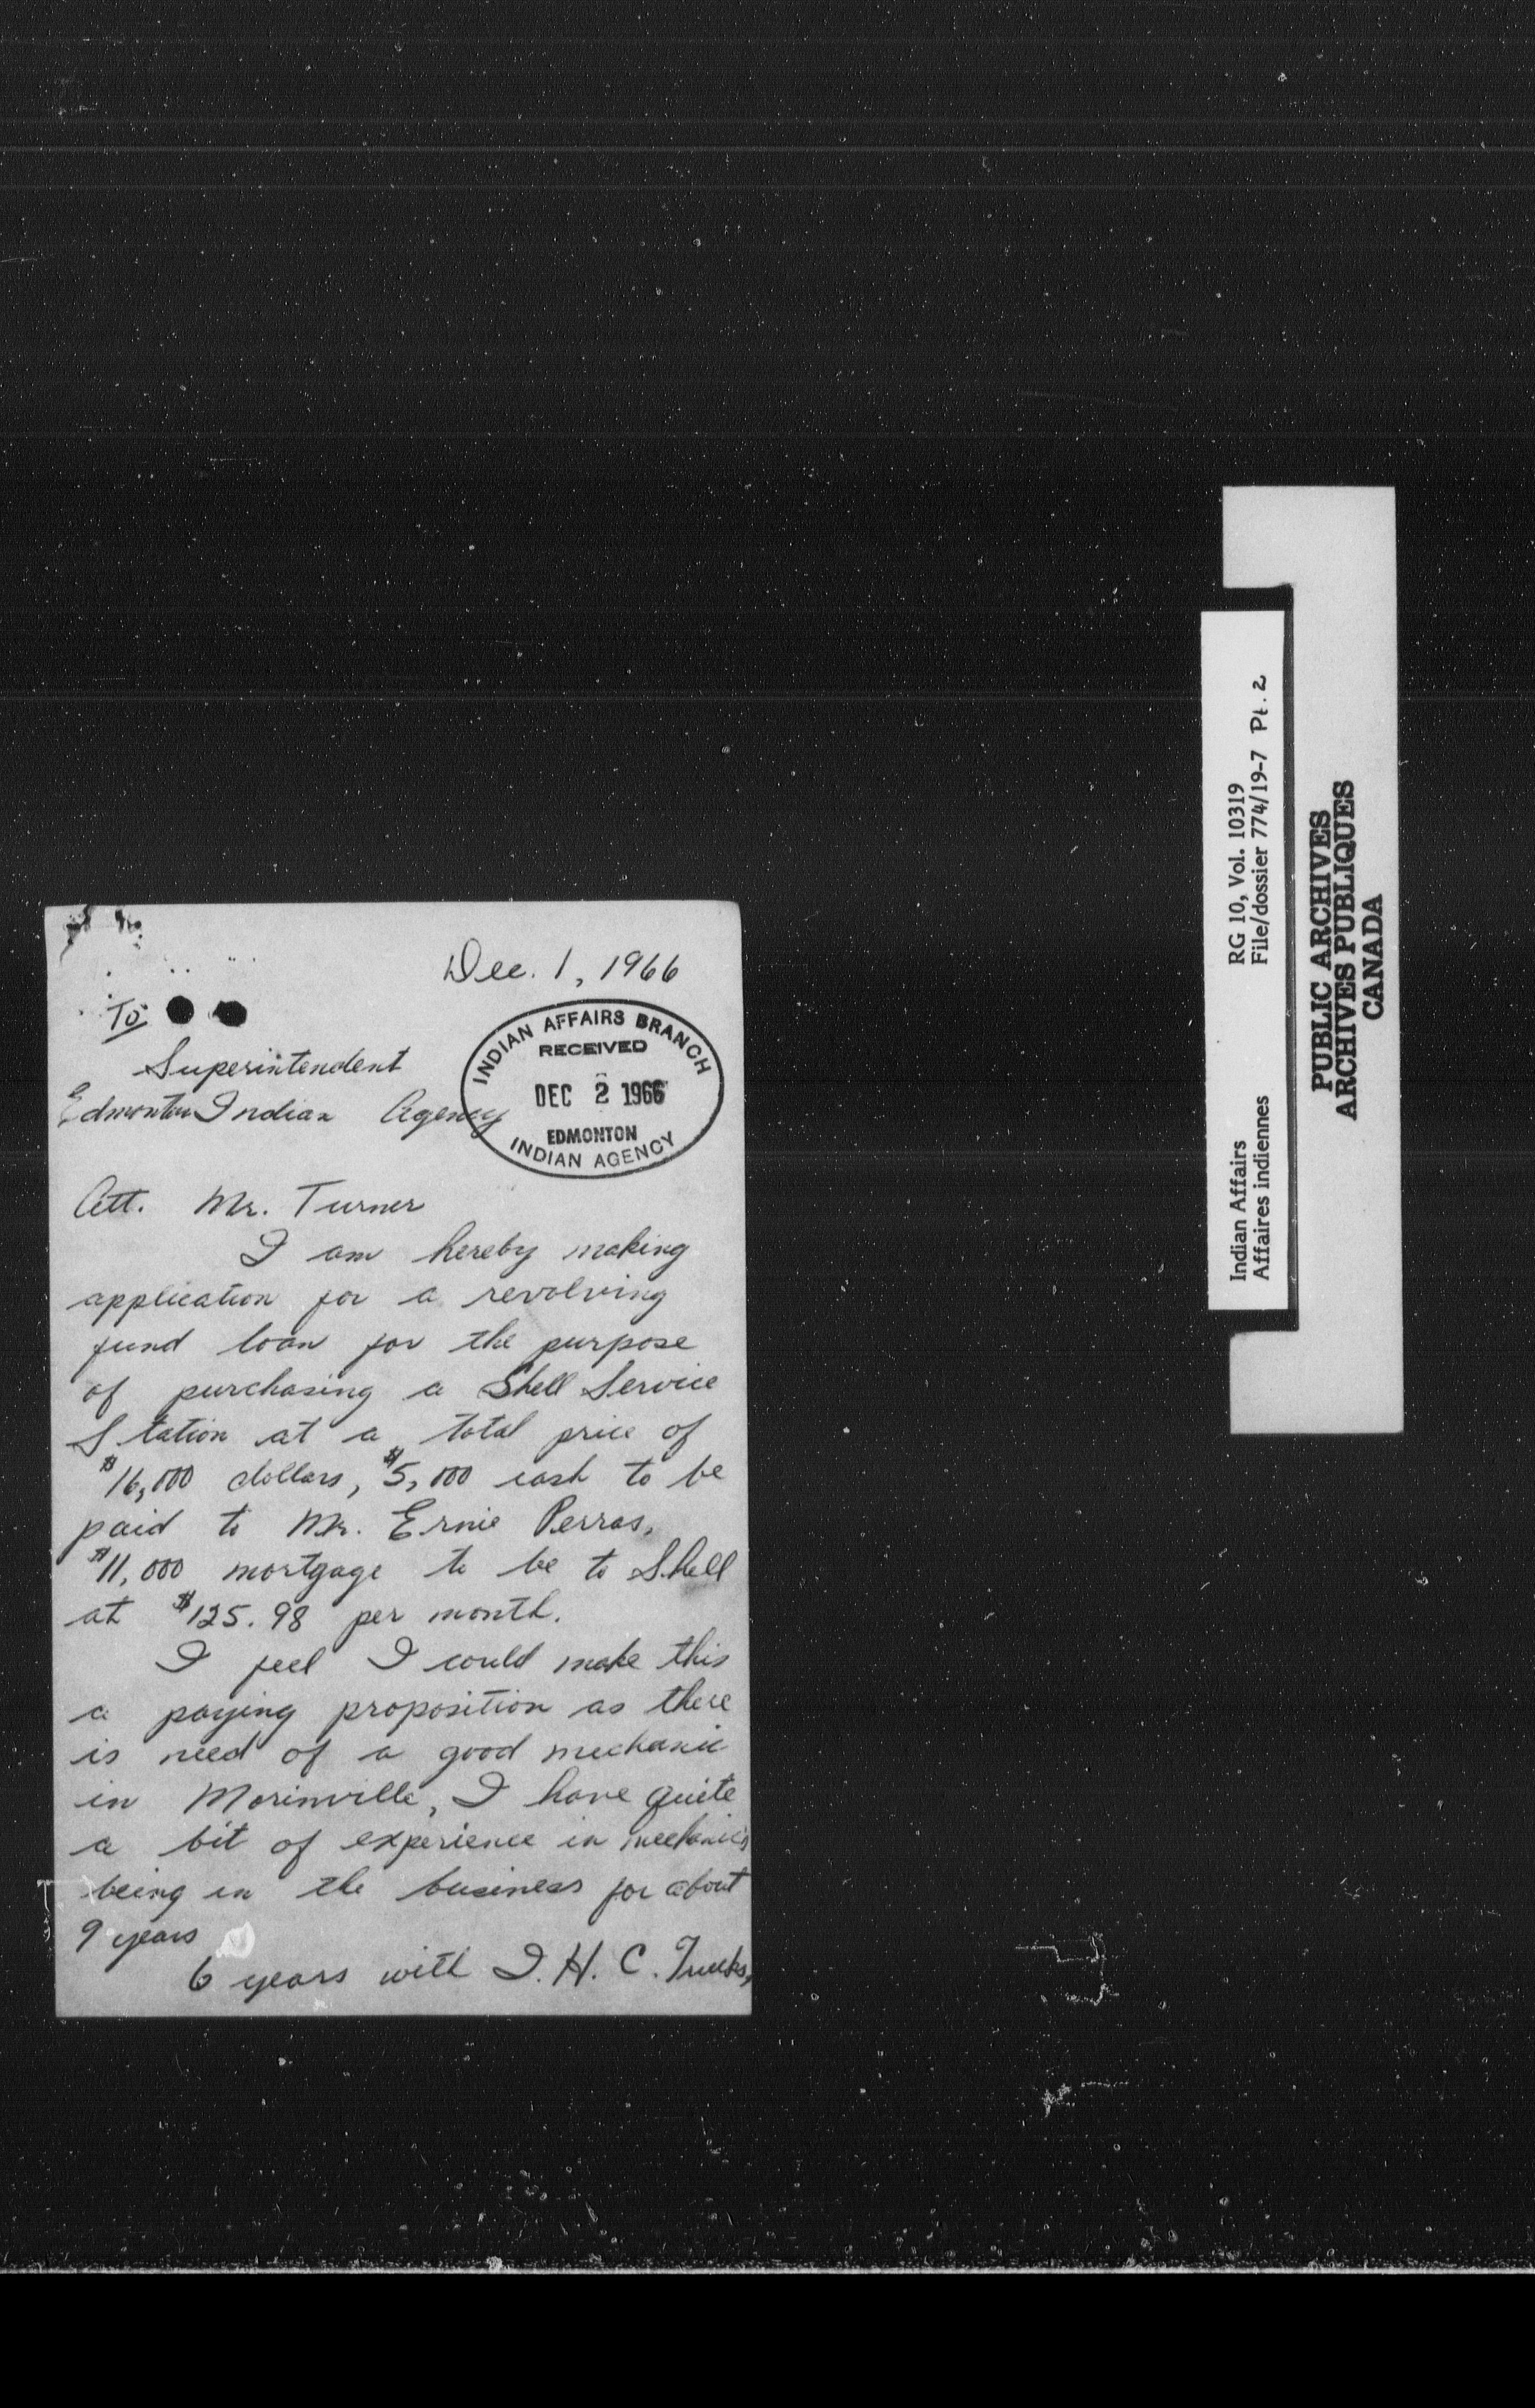 Dec. 1, 1966
To
Superintendent
Edmonton Indian Agency
INDIAN AFFAIRS BRANCH
RECEIVED
DEC 2 1966
EDMONTON
INDIAN AGENCY
Att. Mr. Turner
I am hereby making
application for a revolving
fund loan for the purpose
of purchasing a Shell Service
Station at a total price of
$16,000 dollars, $5,000 cash to be
paid to Mr. Ernie Perras,
$11,000 mortgage to be to Shell
at $125.98 per month.
I feel I could make this
a paying proposition as there
is need of a good mechanic
in Morinville, I have quite
a bit of experience in mechanics
being in the business for about
9 years
6 years with I.H.C. Trucks,
Indian Affairs RG 10, Vol. 10319
Affaires indiennes File/dossier 774/19-7 Pt. 2
PUBLIC ARCHIVES
ARCHIVES PUBLIQUES
CANADA